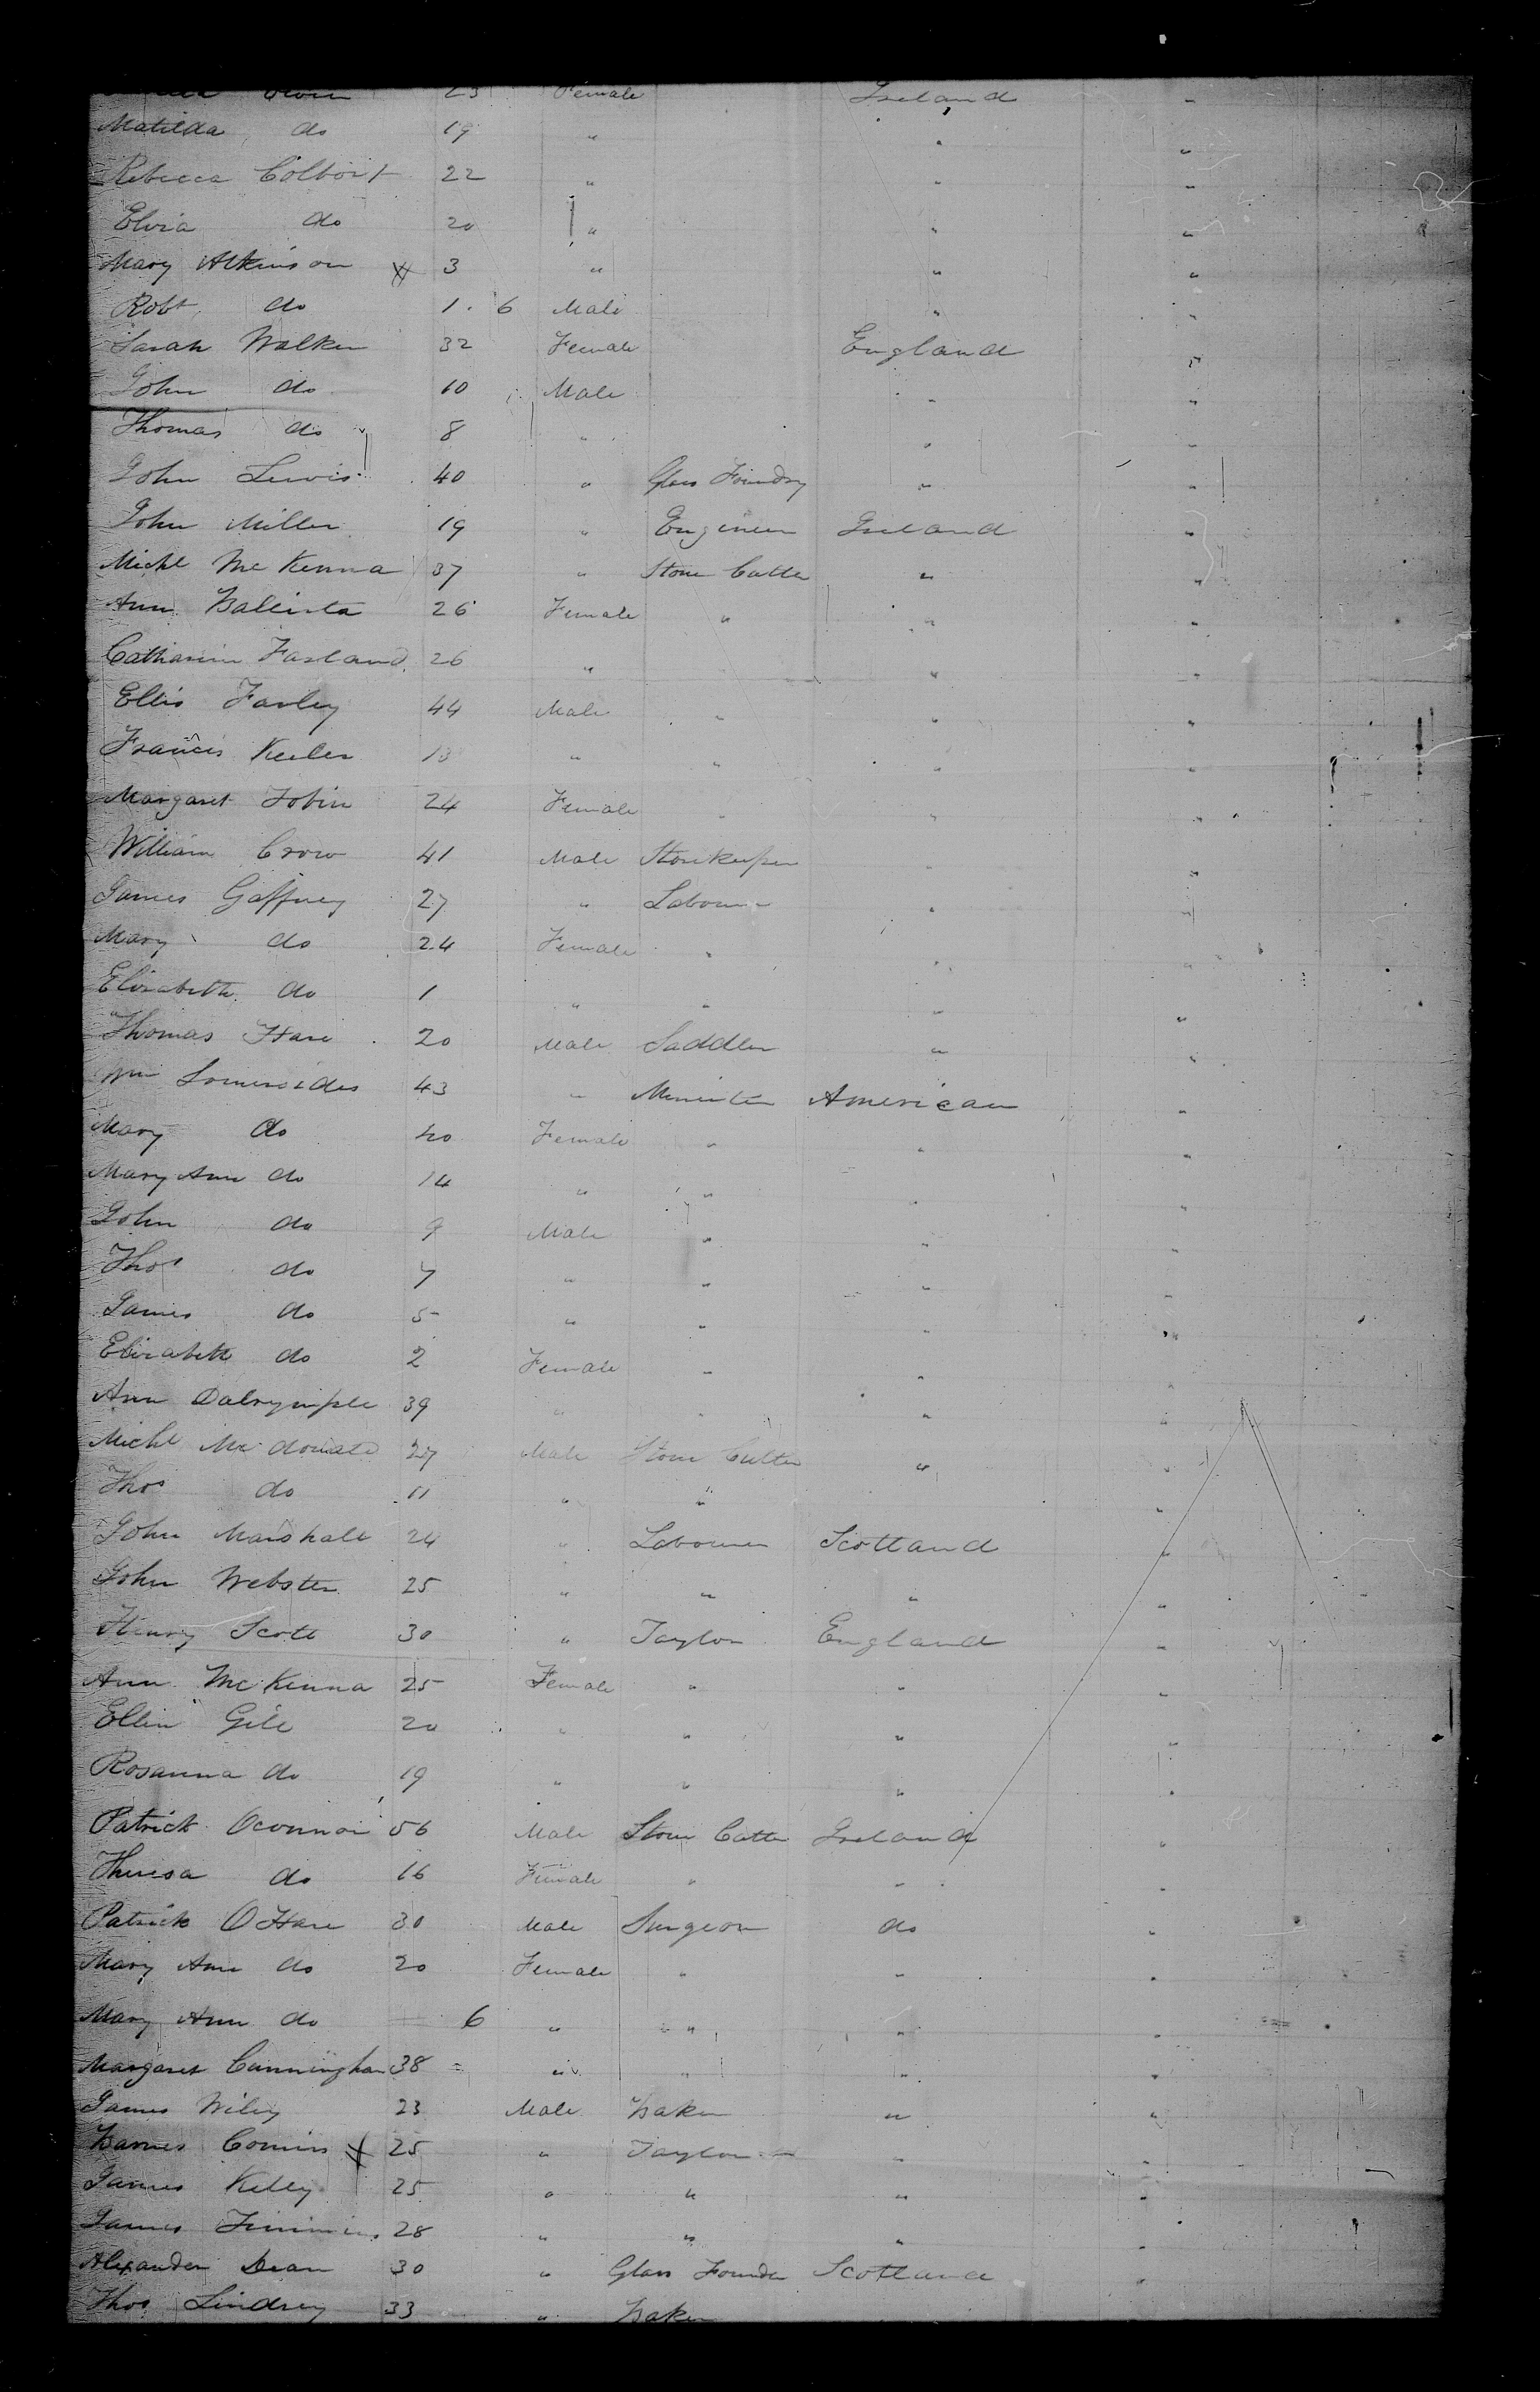 23 Female Ireland "
Matilda do 19 " " "
Rebecca Colbort 22 " " "
Elvia do 20 " " "
Mary Atkinson X 3 " " "
Robt do 1 . 6 Male " "
Sarah Walker 32 Female England "
John do 10 Male " "
Thomas do 8 " " "
John Lewis 40 " Glass Foundry " "
John Miller 19 " Engineer Ireland "
Michl McKenna 37 " Stone Cutter " "
Ann Ballinta 26 Female " " "
Catharin Farland 26 " " "
Ellis Farley 44 Male " " "
Francis Keeler 18 " " " "
Margaret Tobin 24 Female " " "
William Crow 41 Male Storekeeper " "
James Gaffney 27 " Labourer " "
Mary do 24 Female " " "
Elizabeth do 1 " " " "
Thomas Hare 20 Male Saddler " "
Wm Somersides 43 " Minister American "
Mary do 40 Female " " "
Mary Ann do 14 " " " "
John do 9 Male " " "
Thos do 7 " " " "
James do 5 " " " "
Elizabeth do 2 Female " " "
Ann Dalrymple 39 " " " "
Michl McDonald 27 Male Stone Cutter " "
Thos do 11 " " "
John Marshall 24 " Labourer Scotland "
John Webster 25 " " " "
Henry Scott 30 " Taylor England "
Ann McKenna 25 Female " " "
Ellen Gill 20 " " " "
Rosanna do 19 " " " "
Patrick Oconnor 56 Male Stone Cutter Ireland "
Theresa do 16 Female " " "
Patrick OHare 30 Male Surgeon do "
Mary Ann do 20 Female " " "
Mary Ann do 6 " " " "
Margaret Cunningham 38 " " " "
James Wiley 23 Male Baker " "
Barnes Comins X 25 " Taylor " "
James Kelly 25 " " " "
James Timmins 28 " " " "
Alexander Dean 30 " Glass Founder Scotland "
Thos Lindsey 33 " Baker